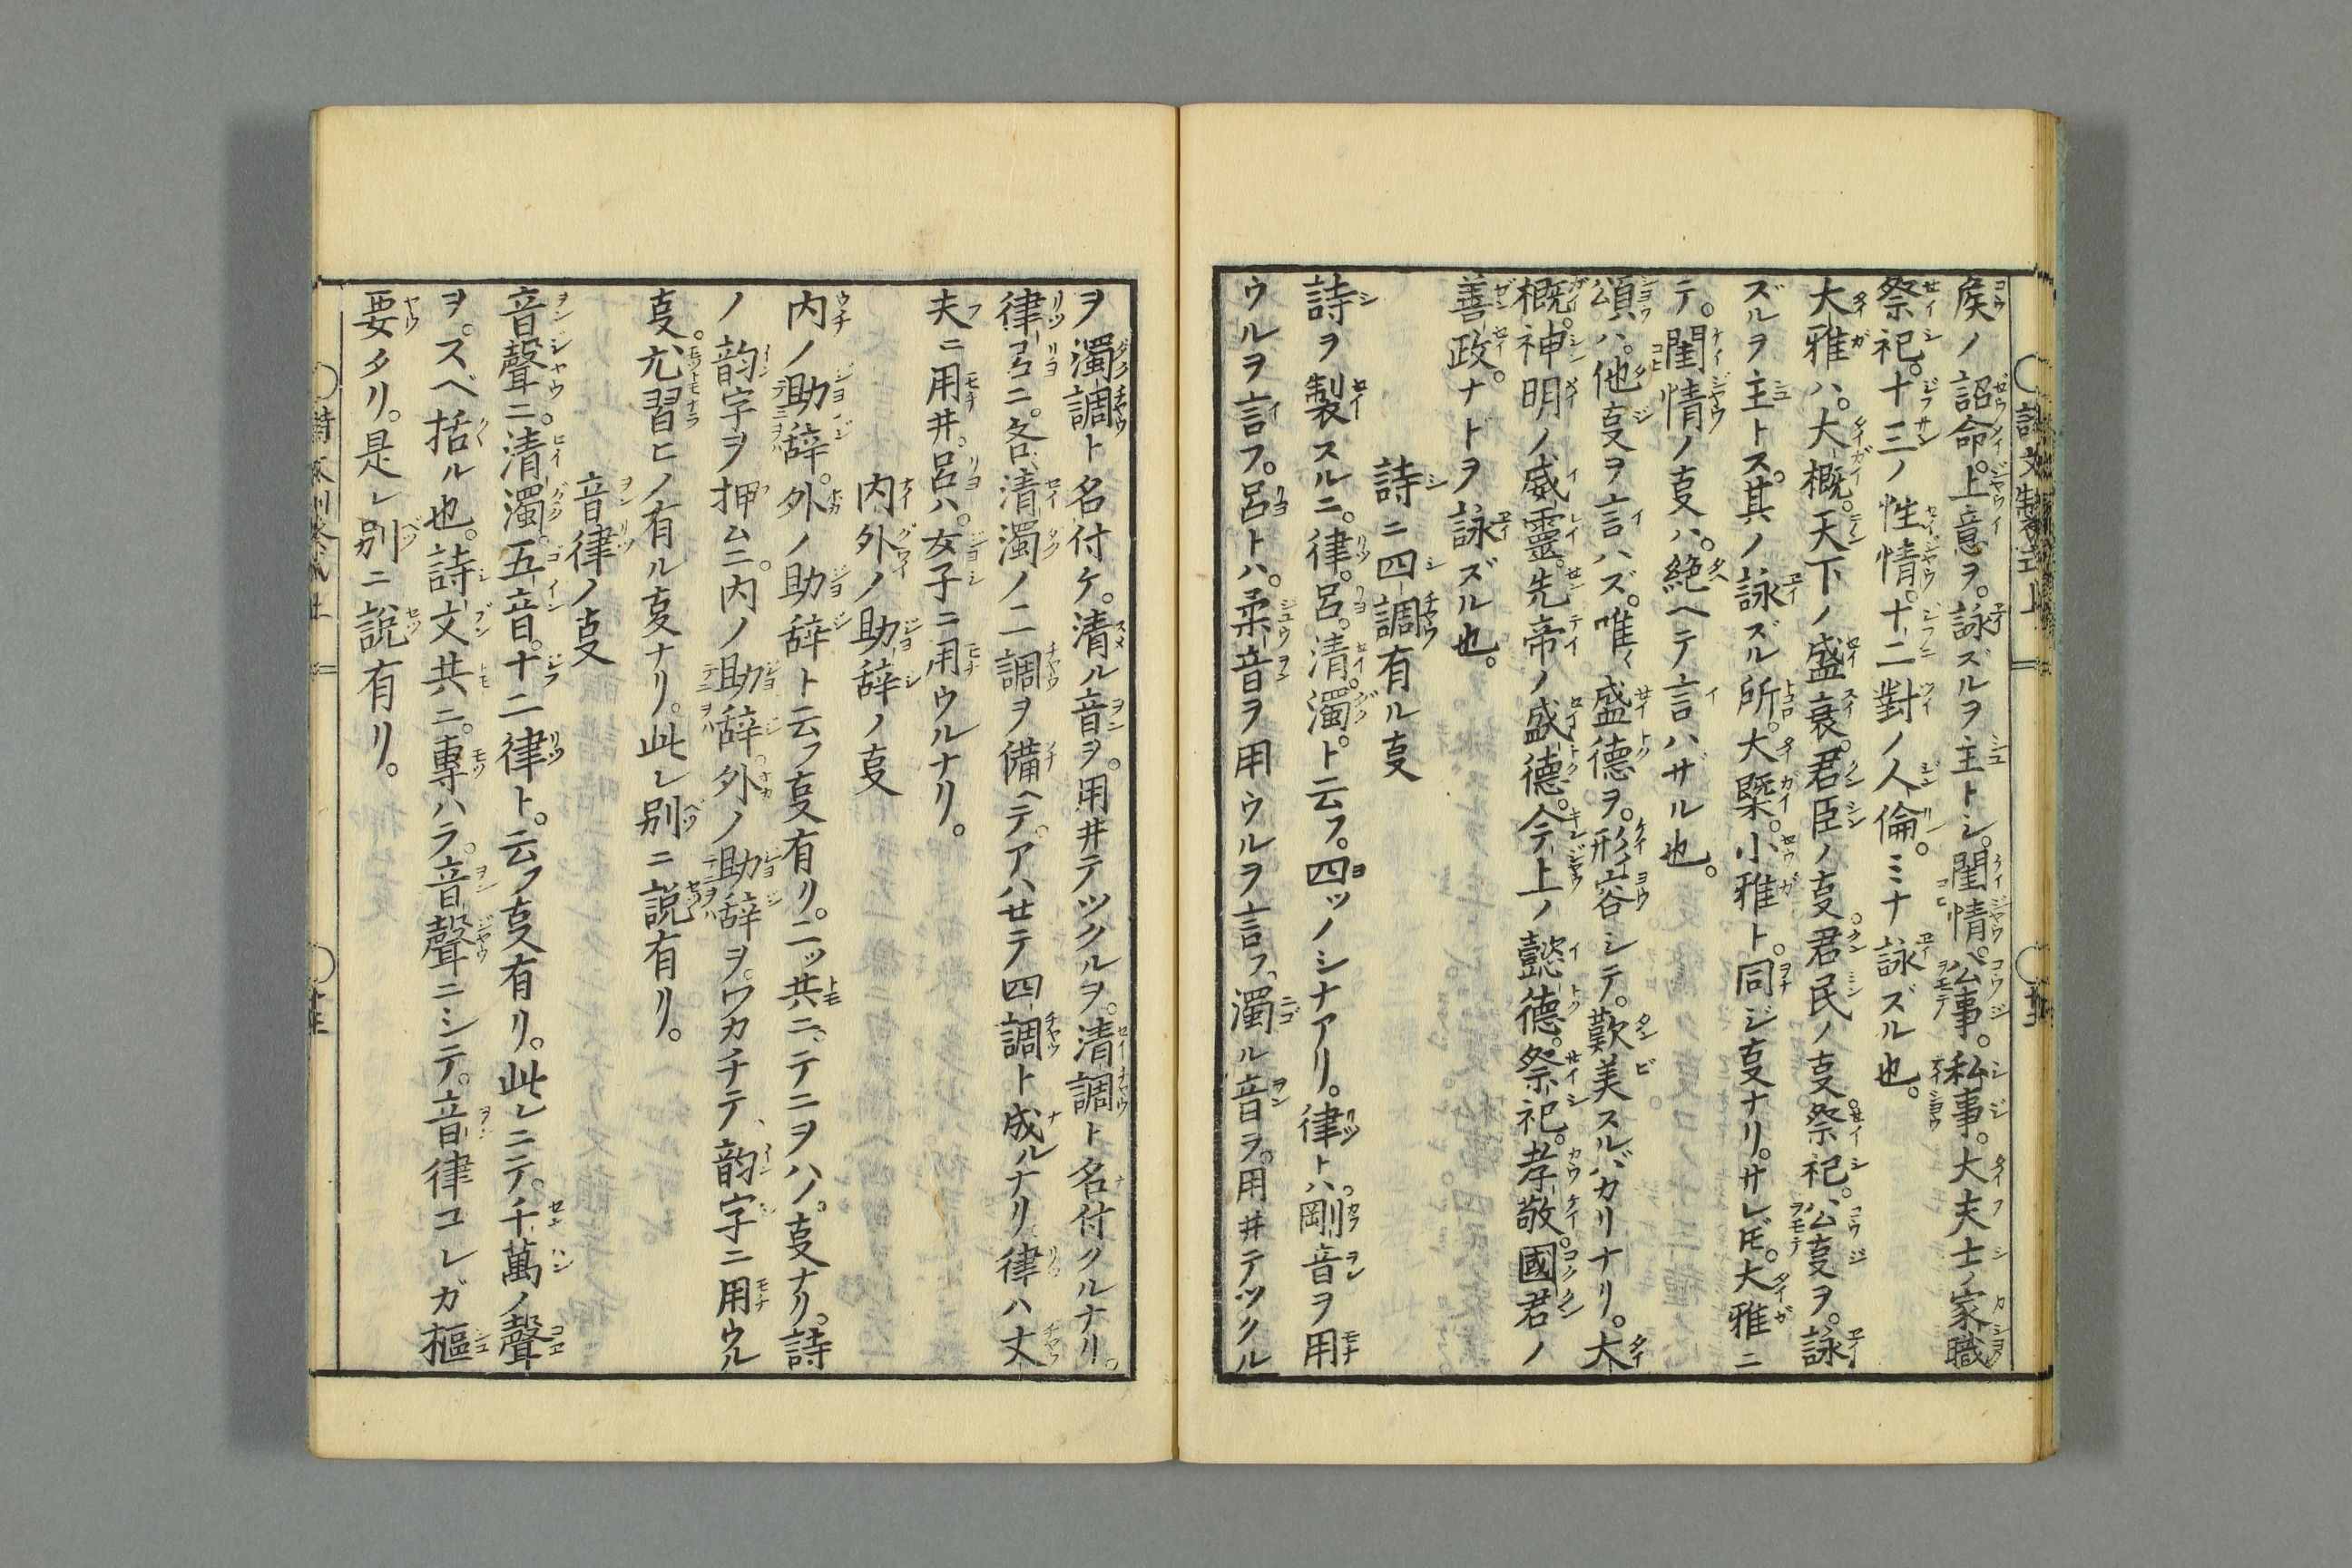 矦ノ詔命。上意ヲ。詠ズルヲ主トシ。閨情。公事。私事。大夫士ノ家職
祭祀。十三ノ性情。十二對ノ人倫。ミナ詠ズル也。
大雅ハ。大概。天下ノ盛衰。君臣ノ叓。君民ノ叓。祭祀。公叓ヲ。詠
ズルヲ主トス。其ノ詠ズル所。大槩。小雅ト。同ジ叓ナリ。サレ𪜈。大雅ニ
テ。閨情ノ叓ハ。絶ヘテ言ハザル也。
頌ハ。他叓ヲ言ハズ。唯〻盛德ヲ。形容シテ。歎美スルバカリナリ。大
概。神明ノ威靈。先帝ノ盛德。今上ノ懿德。祭祀。孝敬。國君ノ
善政。ナドヲ詠ズル也。
詩ニ四調有ル叓
詩ヲ製スルニ。律。呂。清。濁。ト云フ。四ツノシナアリ。律トハ。剛音ヲ用
ウルヲ言フ。呂トハ。柔音ヲ用ウルヲ言フ。濁ル音ヲ。用井テツクル
ヲ濁調ト名付ケ。清ル音ヲ。用井テツクルヲ。清調ト名付クルナリ。
律呂ニ。各〻清濁ノ二調ヲ備ヘテ。アハセテ四調ト成ルナリ。律ハ丈
夫ニ用井。呂ハ。女子ニ用ウルナリ。
内外ノ助辞ノ叓
内ノ助辞。外ノ助辞ト云フ叓有リ。二ツ共ニ。テニヲハノ。叓ナリ。詩
ノ韵字ヲ押ムニ。内ノ助辞。外ノ助辞ヲ。ワカチテ、韵字ニ用ウル
叓。尤習ヒノ有ル叓ナリ。此レ別ニ説有リ。
音律ノ叓
音聲ニ。清濁。五音。十二律ト。云フ叓有リ。此レニテ。千萬ノ聲
ヲ。スベ括ル也。詩文共ニ。專ハラ。音聲ニシテ。音律コレガ樞
要タリ。是レ別ニ説有リ。